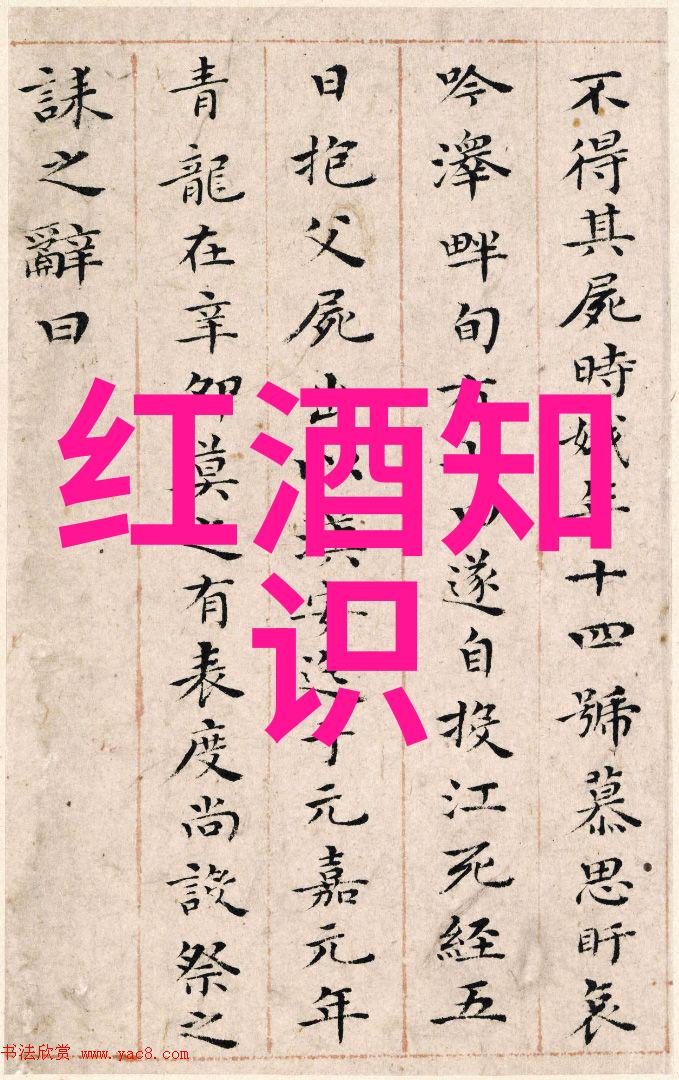 不得其屍時娥年十四號慕思盱哀
吟澤畔旬有遂自投江死經五
日抱父屍出以漢安迄于元嘉元年
青龍在辛卯莫之有表度尚設祭之
誄之辭曰
红酒知
识
书法欣赏 www.yac8.com